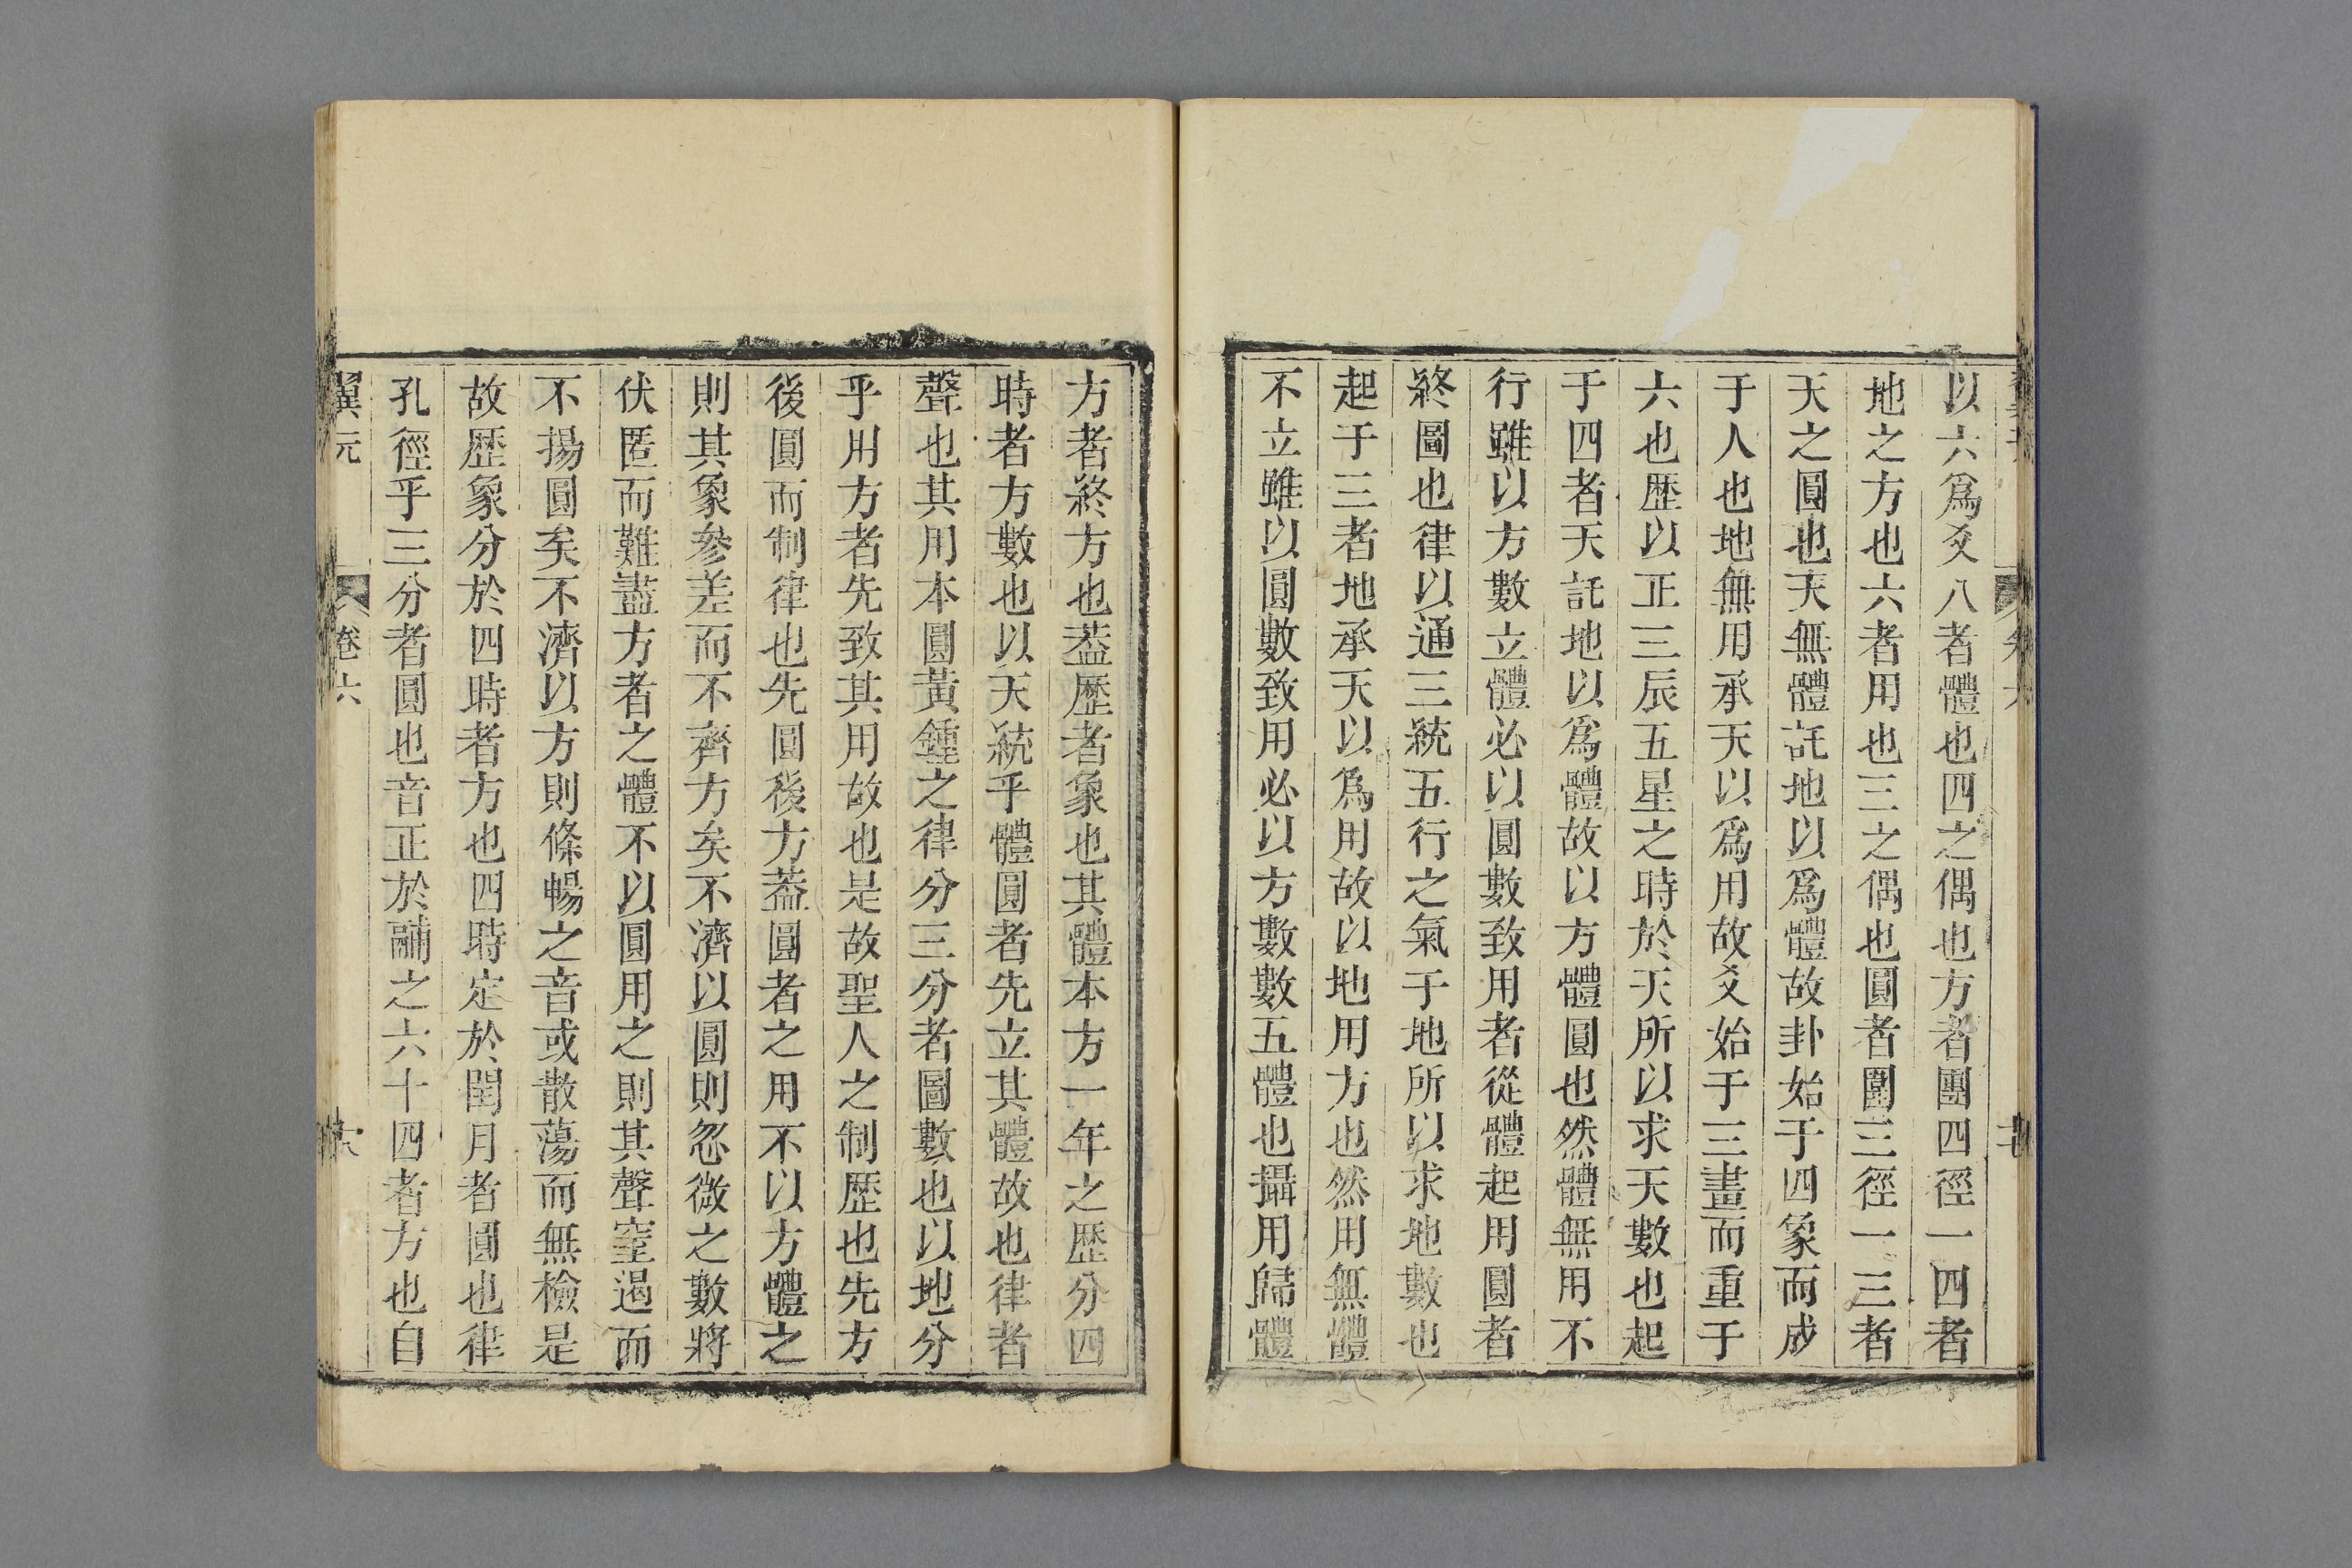 以六爲爻八者體也四之偶也方者圍四徑一四者
地之方也六者用也三之偶也圓者圍三徑一三者
天之圓也天無體託地以爲體故卦始于四象而成
于人也地無用承天以爲用故爻始于三畫而重于
六也歷以正三辰五星之時於天所以求天數也起
于四者天託地以爲體故以方體圓也然體無用不
行雖以方數立體必以圓數致用者從體起用圓者
終圖也律以通三統五行之氣于地所以求地數也
起于三者地承天以爲用故以地用方也然用無體
不立雖以圓數致用必以方數數五體也攝用歸體
方者終方也葢歷者象也其體本方一年之歷分四
時者方數也以天統乎體圓者先立其體故也律者
聲也其用本圓黃鍾之律分三分者圖數也以地分
乎用方者先致其用故也是故聖人之制歷也先方
後圓而制律也先圓後方葢圓者之用不以方體之
則其象參差而不齊方矣不濟以圓則忽微之數將
伏匿而難盡方者之體不以圓用之則其聲窒遏而
不揚圓矣不濟以方則條暢之音或散蕩而無檢是
故歷象分於四時者方也四時定於閏月者圓也律
孔徑乎三分者圓也音正於鬴之六十四者方也自
翼元 卷六